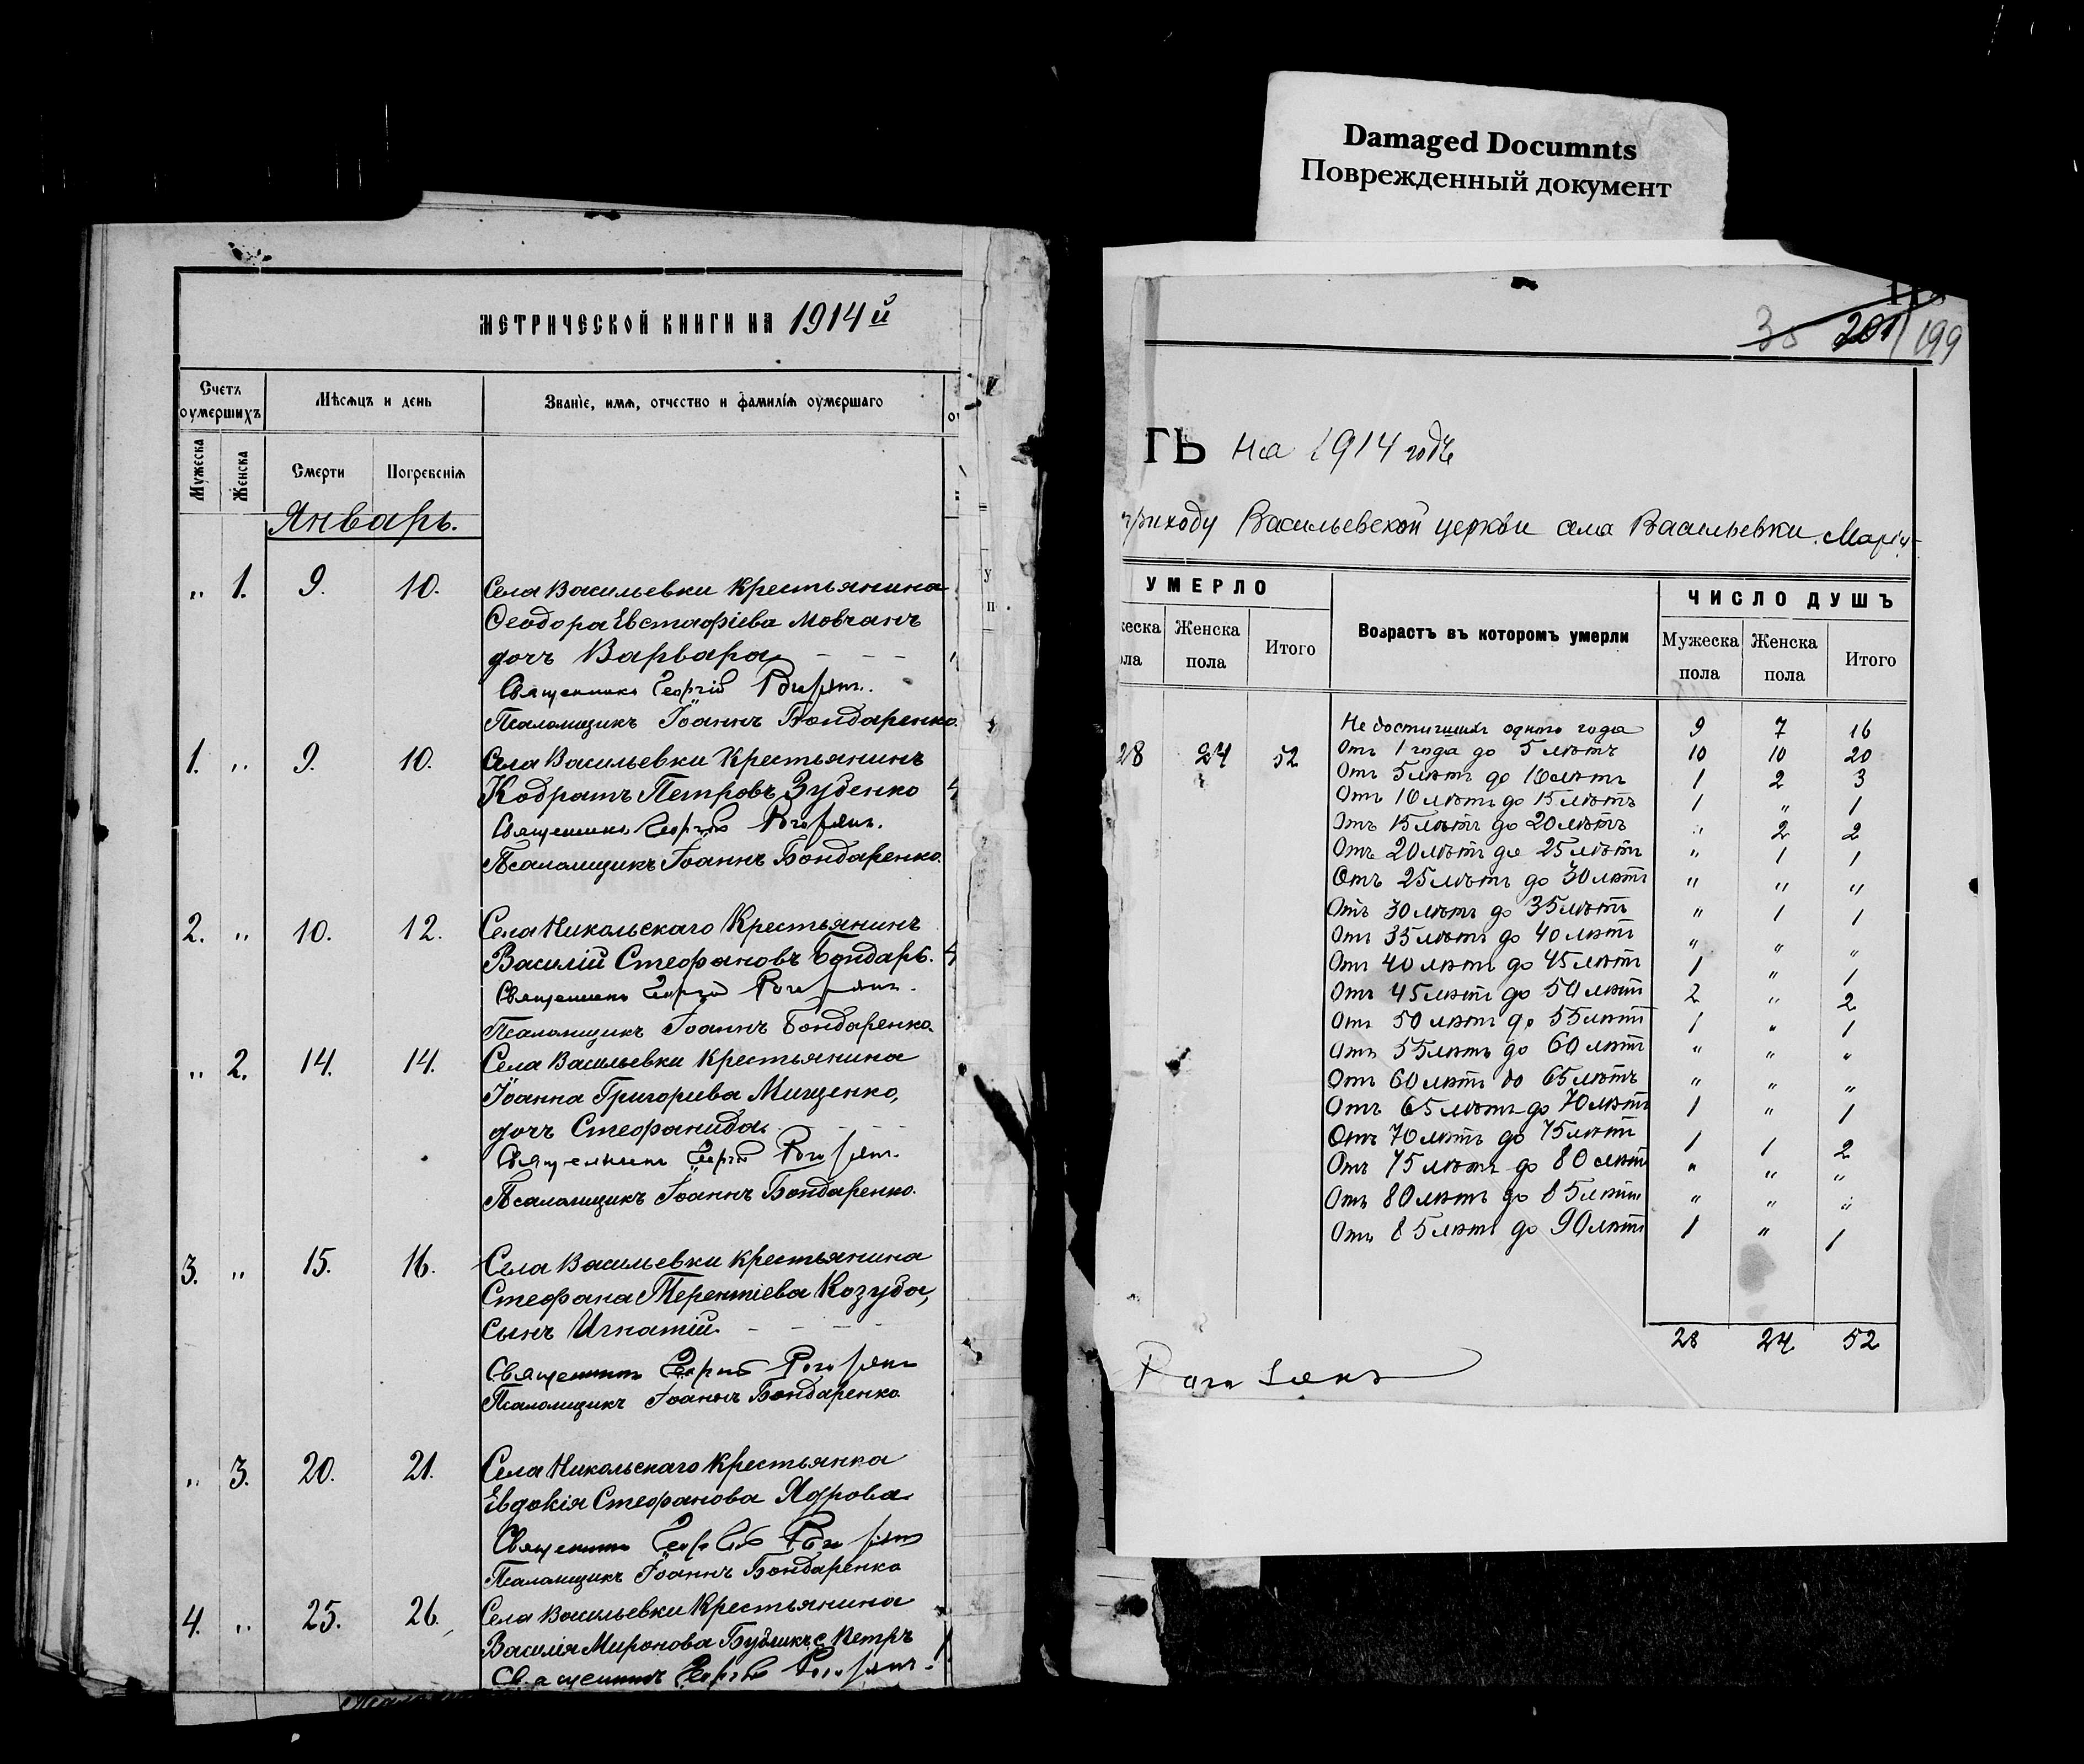 Damaged Documnts
Поврежденный документ
МЕТРИЧЕСКОЙ КНИГИ НА 1914й
Счетъ оумершихъ
Мѣсяцъ и день
Званіе, имя, отчество и фамилія оумершаго
Мужеска
Женска
Смерти
Погребенія
Январь.
" 1. 9. 10. Села Васильевки крестьянина
Ѳеодора Евстафіева Мовчанъ
дочь Варвара - - -
Священникъ Георгій
Псаломщикъ Іоаннъ Бондаренко.
1. " 9. 10. Села Васильевки Крестьянинъ
Кодратъ Петровъ Зубенко
Священникъ Георгій
Псаломщикъ Іоаннъ Бондаренко.
2. " 10. 12. Села Никольскаго Крестьянинъ
Василій Стефановъ Бондарь.
Священникъ Георгій
Псаломщикъ Іоаннъ Бондаренко.
" 2. 14. 14. Села Васильевки крестьянина
Іоанна Григорьева Мищенко,
дочь Стефанида. - - -
Священникъ Георгій
Псаломщикъ Іоаннъ Бондаренко.
3. " 15. 16. Села Васильевки крестьянина
Стефана Терентіева Козуба,
сынъ Игнатій. - - - -
Священникъ Георгій
Псаломщикъ Іоаннъ Бондаренко
" 3. 20. 21. Села Никольскаго крестьянка
Евдокія Стефанова Ядрова
Священникъ Георгій
Псаломщикъ Іоаннъ Бондаренко
4. " 25. 26. Села Васильевки Крестьянина
Василія Миронова Бубликъ с. Петръ
Священникъ Георгій
201/199
ТЬ на 1914 годъ
приходу Васильевской церкви села Васильевки. Марiу-
УМЕРЛО
ЧИСЛО ДУШЪ
Женска пола
Итого
Возрастъ въ которомъ умерли
Мужеска пола
Женска пола
Итого
Не достигшихъ одного года 9 7 16
28 24 52 Отъ 1 года до 5 лѣтъ 10 10 20
Отъ 5 лѣтъ до 10 лѣтъ 1 2 3
Отъ 10 лѣтъ до 15 лѣтъ 1 " 1
Отъ 15 лѣтъ до 20 лѣтъ " 2 2
Отъ 20 лѣтъ до 25 лѣтъ " 1 1
Отъ 25 лѣтъ до 30 лѣтъ " " "
Отъ 30 лѣтъ до 35 лѣтъ " 1 1
Отъ 35 лѣтъ до 40 лѣтъ " " "
Отъ 40 лѣтъ до 45 лѣтъ 1 " 1
Отъ 45 лѣтъ до 50 лѣтъ 2 " 2
Отъ 50 лѣтъ до 55 лѣтъ 1 " 1
Отъ 55 лѣтъ до 60 лѣтъ " " "
Отъ 60 лѣтъ до 65 лѣтъ " " "
Отъ 65 лѣтъ до 70 лѣтъ 1 " 1
Отъ 70 лѣтъ до 75 лѣтъ 1 1 2
Отъ 75 лѣтъ до 80 лѣтъ " " "
Отъ 80 лѣтъ до 85 лѣтъ " " "
Отъ 85 лѣтъ до 90 лѣтъ 1 " 1
28 24 52